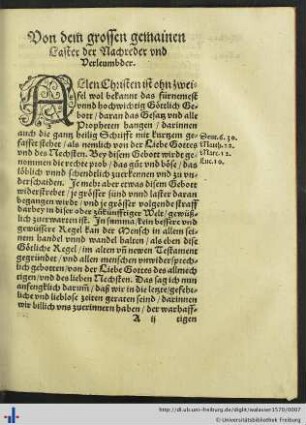 Von dem grossen gemainen
Laster der Nachreder vnd
Verleumbder.
ALlen Christen ist ohn zwei-
fel wol bekannt das fürnemest
vnnd hochwichtig Göttlich Ge-
bott / daran das Gesatz vnd alle
Propheten hangen / darinnen
auch die gantz heilig Schrifft mit kurtzem ge-
fasset stehet / als nemlich von der Liebe Gottes
vnd des Nechsten. Bey disem Gebott wirdt ge-
nommen die recht prob / das gůt vnd böse / das
löblich vnnd schendtlich zuerkennen vnd zu vn-
derschaiden. Je mehr aber etwas disem Gebott
widerstrebet / je grösser sünd vnnd laster daran
begangen wirdt / vnd je grösser volgende straff
darbey in diser oder zůkünfftiger Welt / gewüß-
lich zuerwarten ist. In summa / kein bessere vnd
gewüssere Regel kan der Mensch in allem sei-
nem handel vnnd wandel halten / als eben dise
Götliche Regel / im alten vñ newen Testament
gegründet / vnd allen menschen vnwidersprech-
lich gebotten / von der Liebe Gottes des allmech
tigen / vnd des lieben Nechsten. Das sag ich nun
anfengklich darum̃ / daß wir in die letzte / gefehr-
liche vnd lieblose zeiten geraten seind / darinnen
wir billich vns zuerinnern haben / der warhaff-
A ij tigen
Deut. 6. 30.
Matth. 22.
Marc. 12.
Luc. 10.
http://dl.ub.uni-freiburg.de/diglit/walasser1570/0007
© Universitätsbibliothek Freiburg